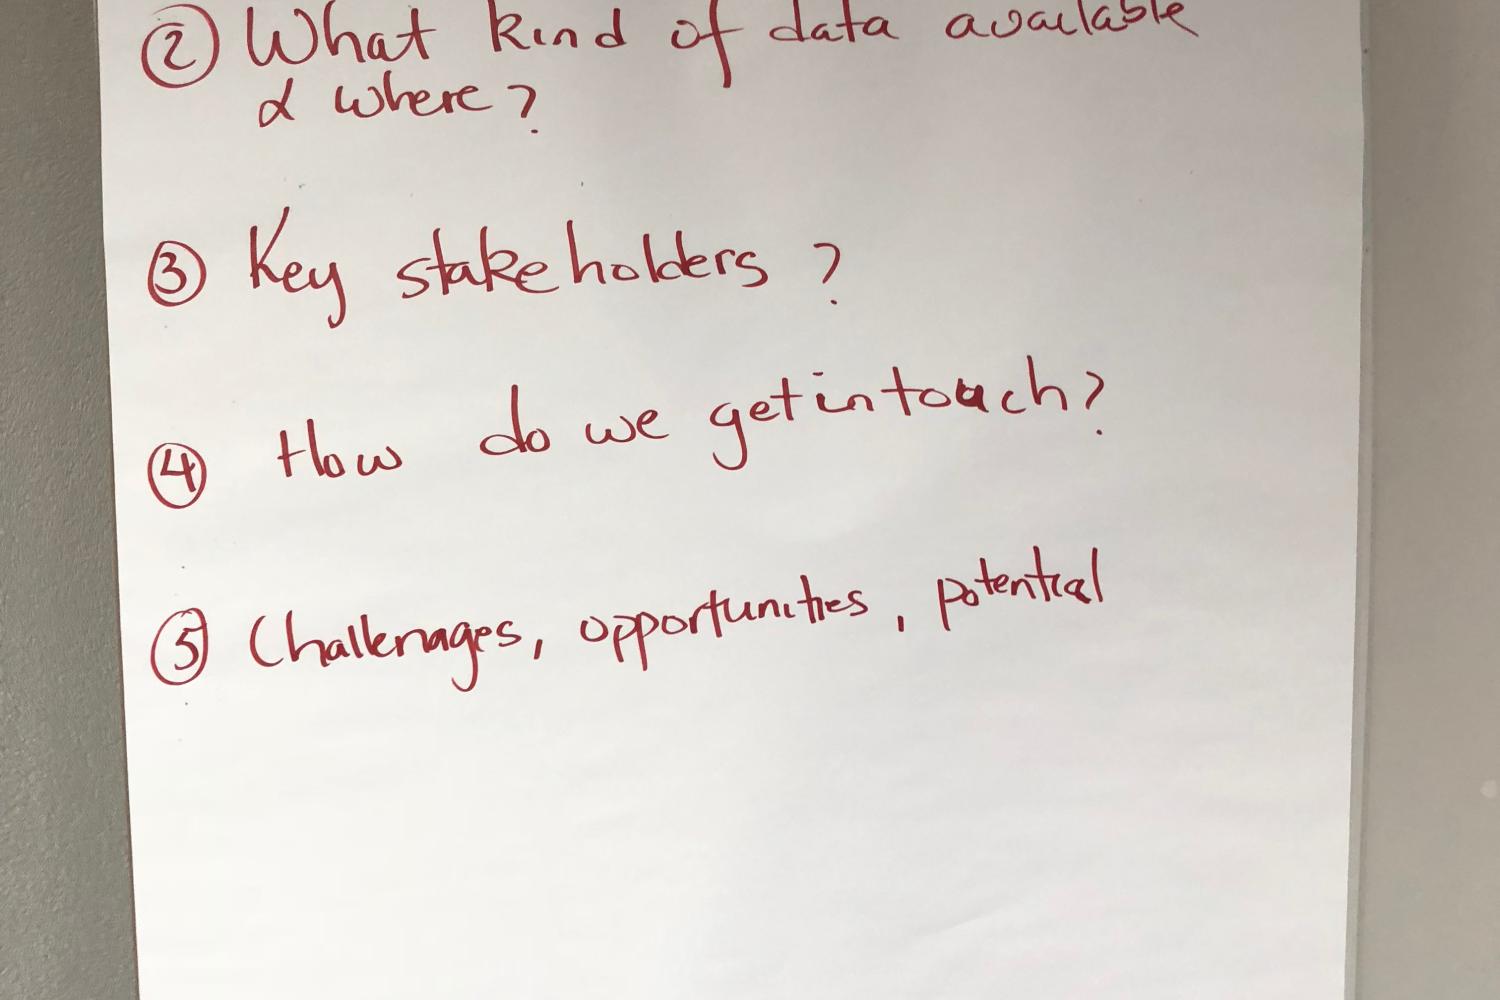 ② What kind of data available
& where?
③ Key stakeholders ?
④ How do we get in touch?
⑤ Challenages, opportunities, potential